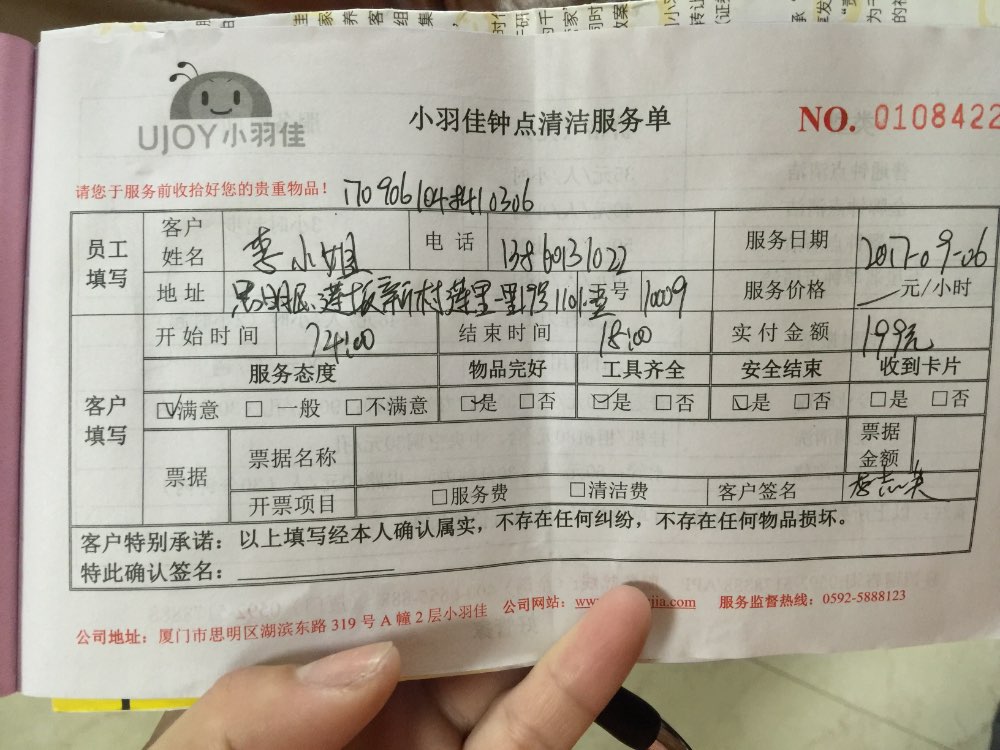 UJOY小羽佳
小羽佳钟点清洁服务单
NO. 0108422
请您于服务前收拾好您的贵重物品！
员工填写 客户姓名 李小姐 电话 13860131022 服务日期 2017-09-06
地址 号 10009 服务价格 元/小时
开始时间 14:00 结束时间 18:00 实付金额 199元
客户填写 服务态度 物品完好 工具齐全 安全结束 收到卡片
☑满意 □一般 □不满意 ☑是 □否 ☑是 □否 ☑是 □否 □是 □否
票据 票据名称 票据金额
开票项目 □服务费 □清洁费 客户签名
客户特别承诺：以上填写经本人确认属实，不存在任何纠纷，不存在任何物品损坏。
特此确认签名：
公司地址：厦门市思明区湖滨东路 319 号 A 幢 2 层小羽佳 公司网站： 服务监督热线：0592-5888123